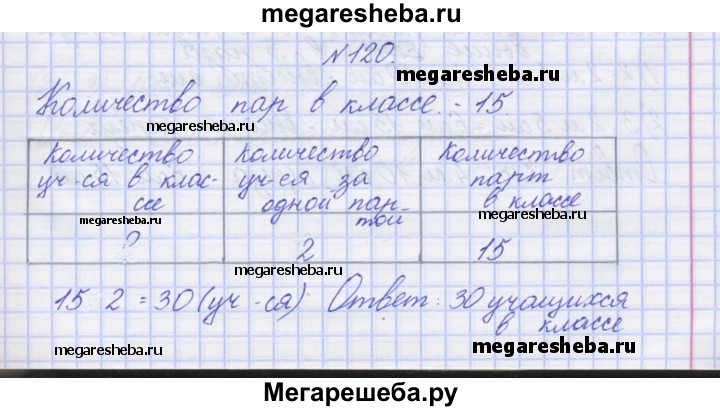 megaresheba.ru
№120.
megaresheba.ru
Количество пар в классе. - 15
megaresheba.ru
Количество уч-ся в клас-
се
Количество
уч-ся за
одной пан-
той
Количество
парт
в классе
megaresheba.ru
megaresheba.ru
?
2
15
megaresheba.ru
15 2 = 30 (уч-ся) Ответ: 30 учащихся
в классе
megaresheba.ru
megaresheba.ru
Мегарешеба.ру